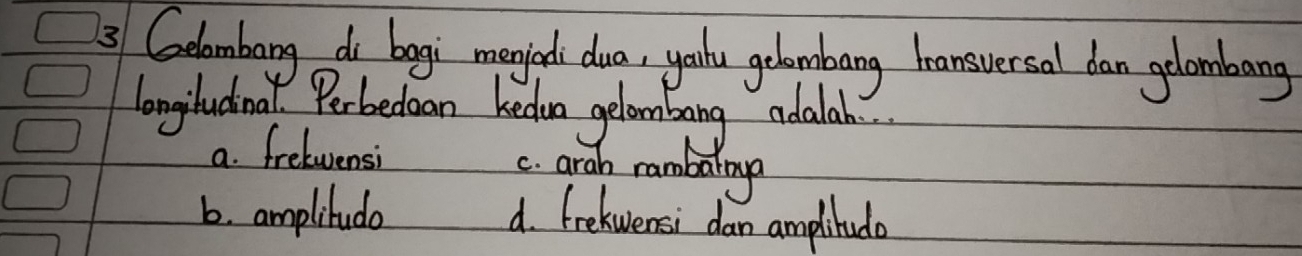 3 Gelombang di bagi menjadi dua, yaitu gelombang transversal dan gelombang
longitudinal. Perbedaan kedua gelombang adalah...
a. frekwensi c. arah rambatnya
b. amplitudo d. frekwensi dan amplitudo